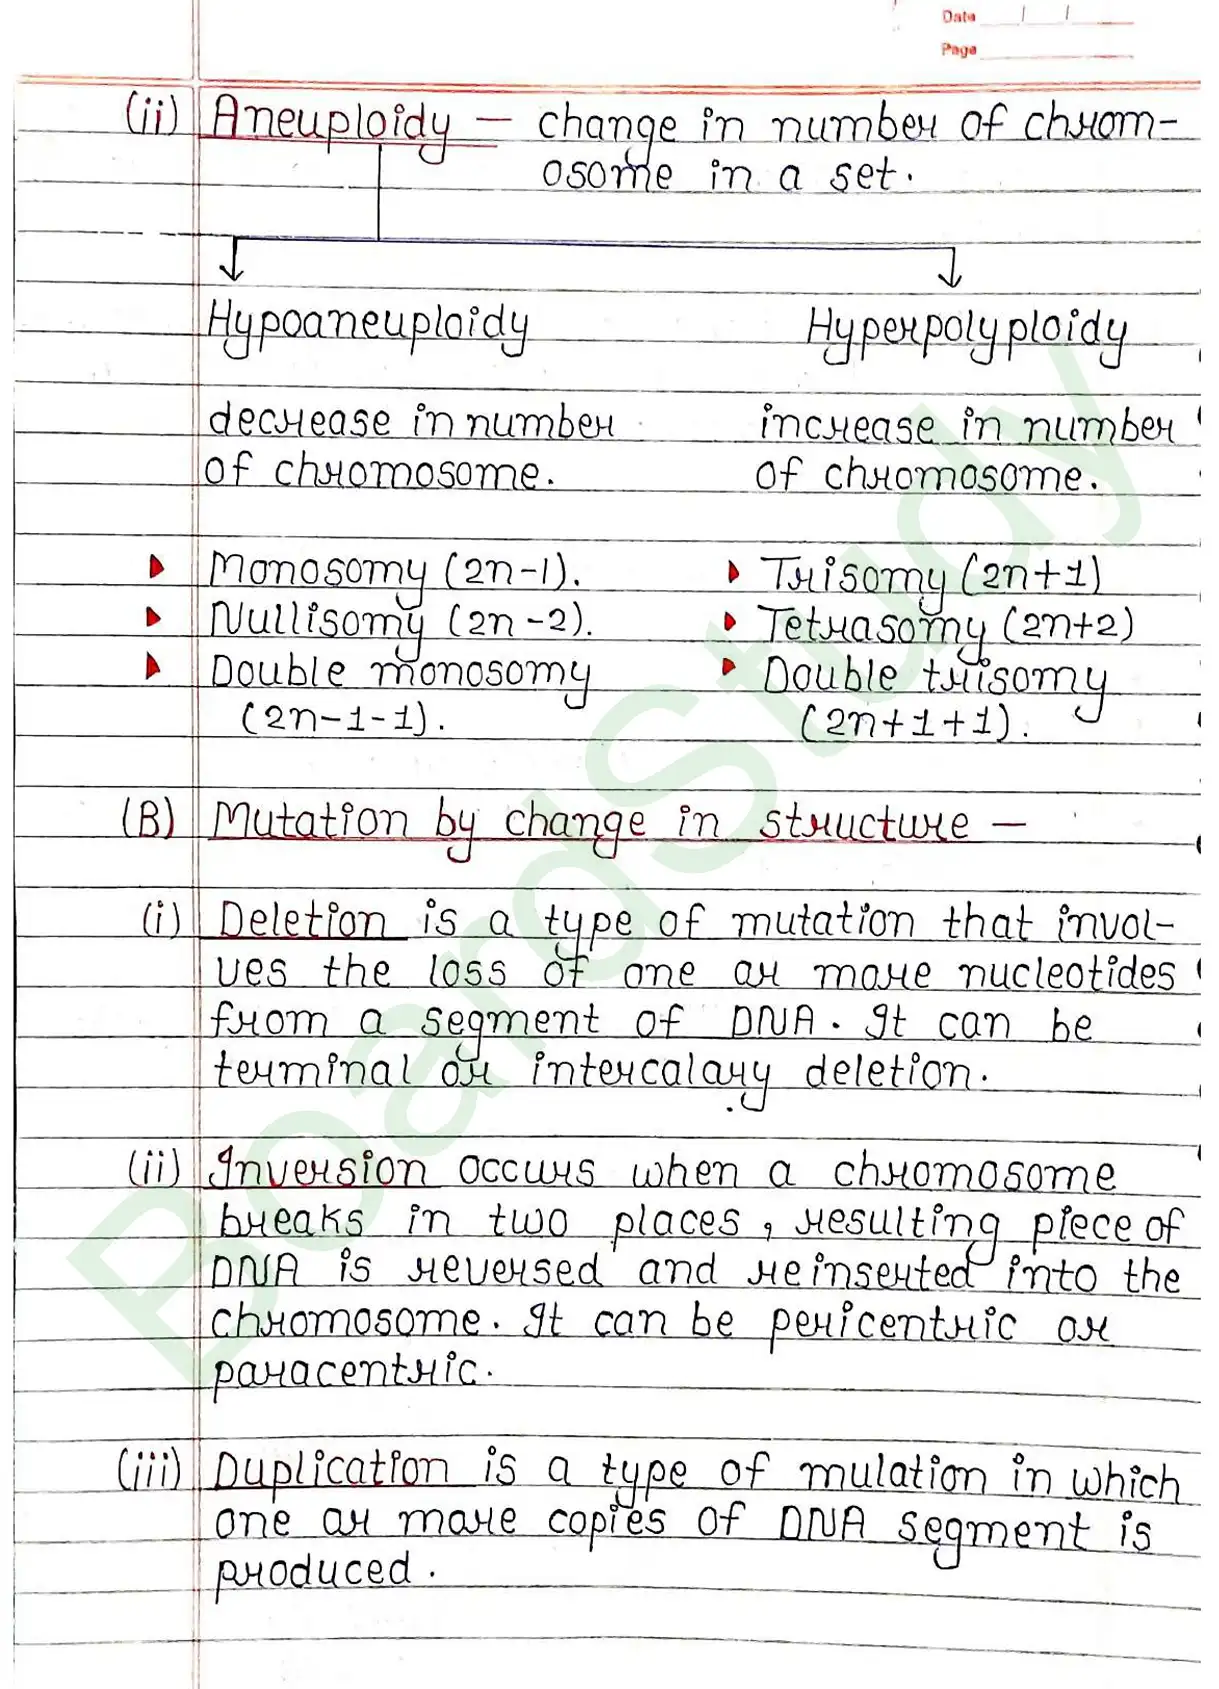 Date / /
Page
(ii) Aneuploidy — change in number of chrom-
osome in a set.
Hypoaneuploidy Hyperpolyploidy
decrease in number increase in number
of chromosome. of chromosome.
Monosomy (2n-1). Trisomy (2n+1)
Nullisomy (2n-2). Tetrasomy (2n+2)
Double monosomy Double trisomy
(2n-1-1). (2n+1+1).
(B) Mutation by change in structure —
(i) Deletion is a type of mutation that invol-
ves the loss of one or more nucleotides
from a segment of DNA. It can be
terminal or intercalary deletion.
(ii) Inversion occurs when a chromosome
breaks in two places, resulting piece of
DNA is reversed and reinserted into the
chromosome. It can be pericentric or
paracentric.
(iii) Duplication is a type of mulation in which
one or more copies of DNA segment is
produced.
BoardStudy